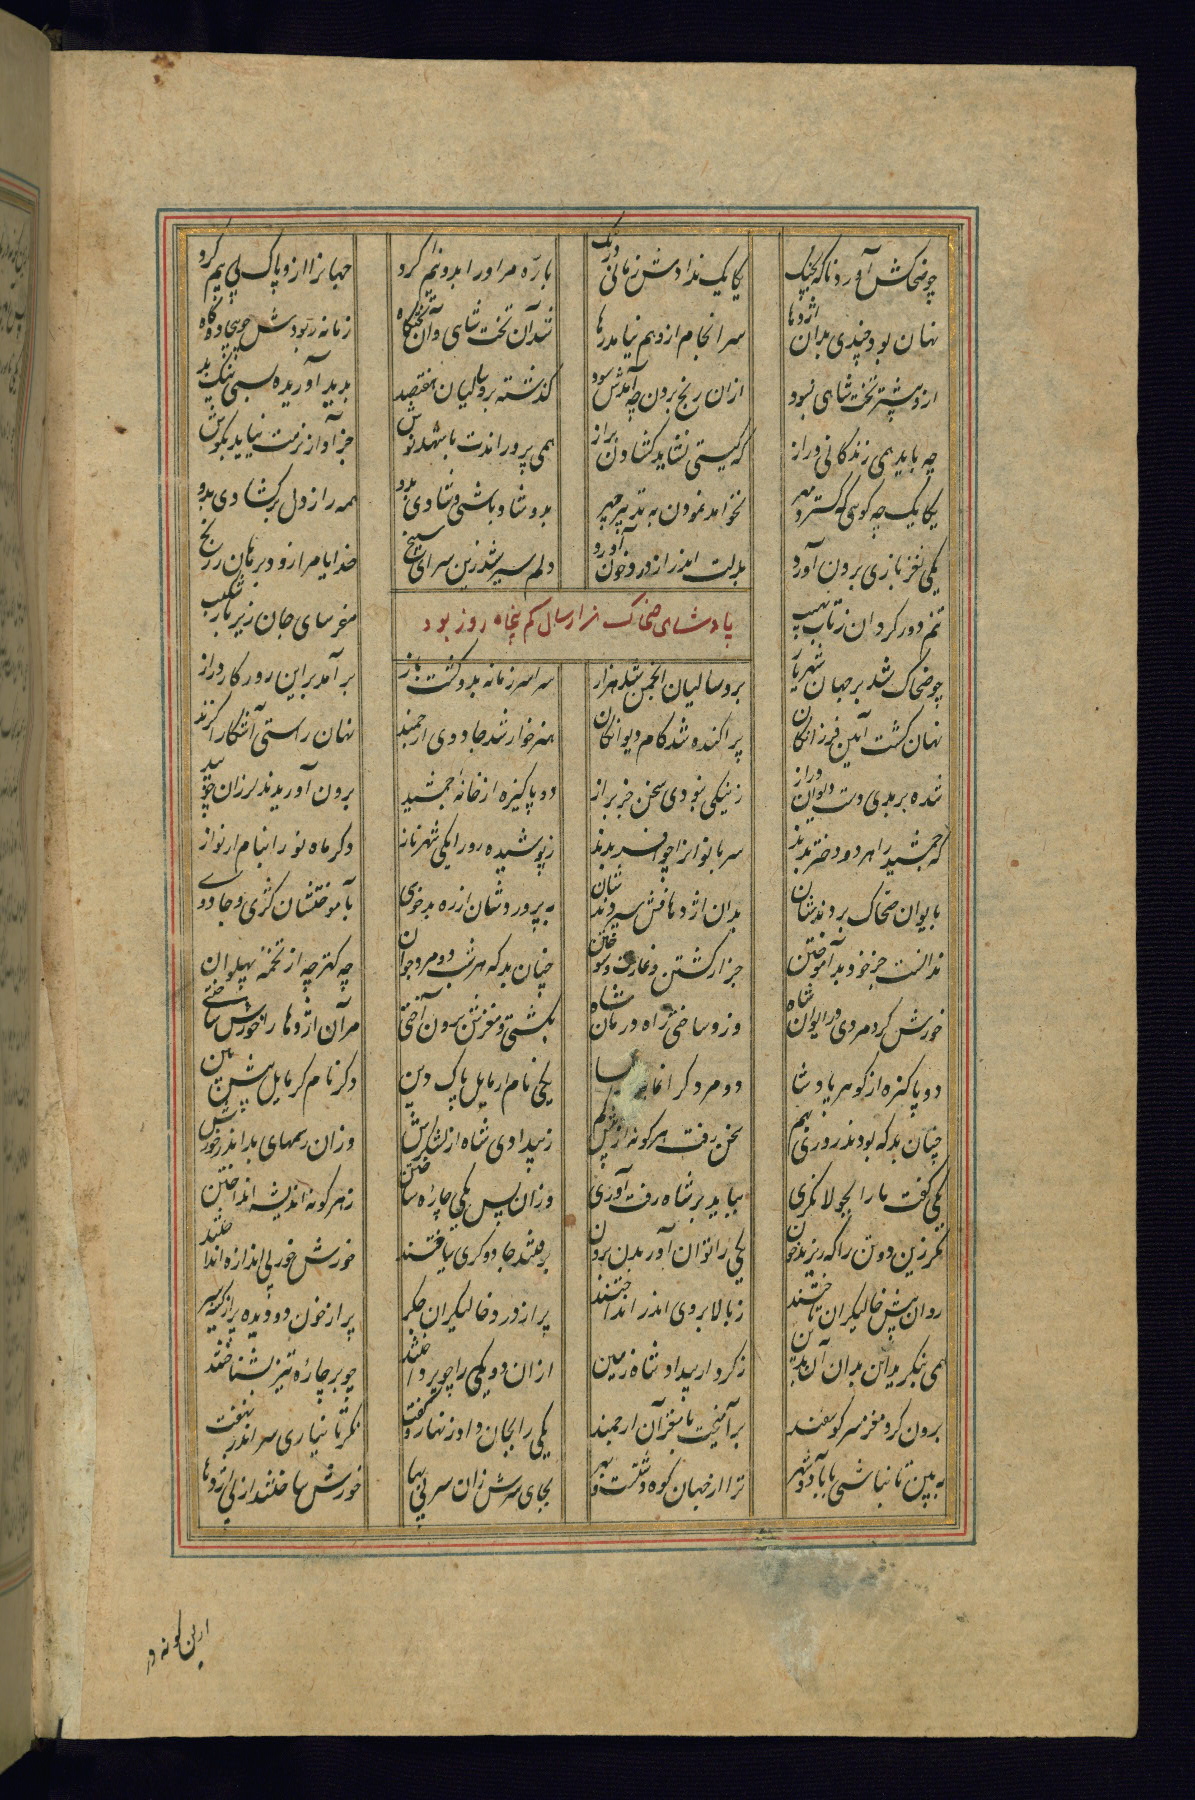 چو ضحاکش آورد ناکه بچنک یکایک ندادش زمانی درنک باره مر او را بدو نیم کرد جهانرا ازو پاک بی بیم کرد
نهان بود چندی بدان اژدها سرانجام ازو هم نیامد رها شد آن تخت شاهی و آن تختگاه زمانه ربودش چو بیجاده کاه
ازو پیشتر تخت شاهی نبود ازان رنج بردن چه آمدش سود گذشته برو سالیان هفتصد بدید آوریده بسی نیک و بد
چه باید همی زندگانی دراز که گیتی نشاید گشادن براز همی پروراندت با شهد و نوش جز آواز نرمت نیاید بگوش
یکایک چه گوئی که گسترد مهر نخواهد نمودن به تدبیر مهر بدو شاد باشی و شادی بدو همه راز دل برگشادی بدو
یکی نغز بازی برون آورد بدلت اندر از درد خون آورد دلم سیر شد زین سرای سپنج خدایا مرا زود برهان ز رنج
پادشاهی ضحاک هزار سال کم پنجاه روز بود
چو ضحاک شد بر جهان شهریار برو سالیان انجمن شد هزار سراسر زمانه بدو گشت باز برآمد براین روزگار دراز
نهان گشت آیین فرزانگان پراکنده شد کام دیوانگان هنر خوار شد جادوی ارجمند نهان راستی آشکارا گزند
شده بر بدی دست دیوان دراز ز نیکی نبودی سخن جز براز دو پاکیزه از خانهٔ جمشید برون آوریدند لرزان چو بید
که جمشید را هر دو دختر بدند سر بانوانرا چو افسر بدند ز پوشیده رو را یکی شهرناز دگر ماه نو را بنام ارنواز
بایوان ضحاک بردندشان بدان اژدهافش سپردندشان بپروردشان از ره بدخوی بیاموختشان کژی و جادوی
ندانست جز خود بد آموختن جز از کشتن و غارت و سوختن چنان بد که هر شب دو مرد جوان چه کهتر چه از تخمهٔ پهلوان
خورش کرد مردی در ایوان شاه وزو ساختی راه درمان شاه بکشتی و مغزش برون آختی مر آن اژدها را خورش ساختی
دو پاکیزه از گوهر پادشا دو مرد گرانمایه یکی نام ارمایل پاک دین دگر نام گرمایل پیش بین
چنان بد که بودند روزی بهم سخن رفت هرگونه از بیش و کم ز بیدادی شاه از لشکرش وزان رسمهای بد اندر خورش
یکی گفت ما را بخوالیگری بباید بر شاه رفت آوری وزان پس یکی چاره ساختن ز هر گونه اندیشه انداختن
مگر زین دو تن را که ریزند خون یکی را توان آوریدن برون برفتند جادوگری یافتند خورش خود بی اندازه
روان پیش خالیگران تاختند ز بالا بروی اندر انداختند پر از درد خالیگران جگر پر از خون دو دیده پر از کینه سر
همی بنگرید این بدان آن بدین ز کردار بیداد شاه زمین ازان دو یکی را بپرداختند چو بر چاره تیز بشتافتند
برون کرد مغز سر گوسفند برآمیخت با مغز آن ارجمند یکی را بجان داد زنهار و گفت نگر تا نیاری سر اندر نهفت
به بین تا نباشی بآباد شهر ترا از جهان کوه و دشتست بهر بجای سرش زان سر بی بها خورش ساختند از پی اژدها
ازین گونه هر